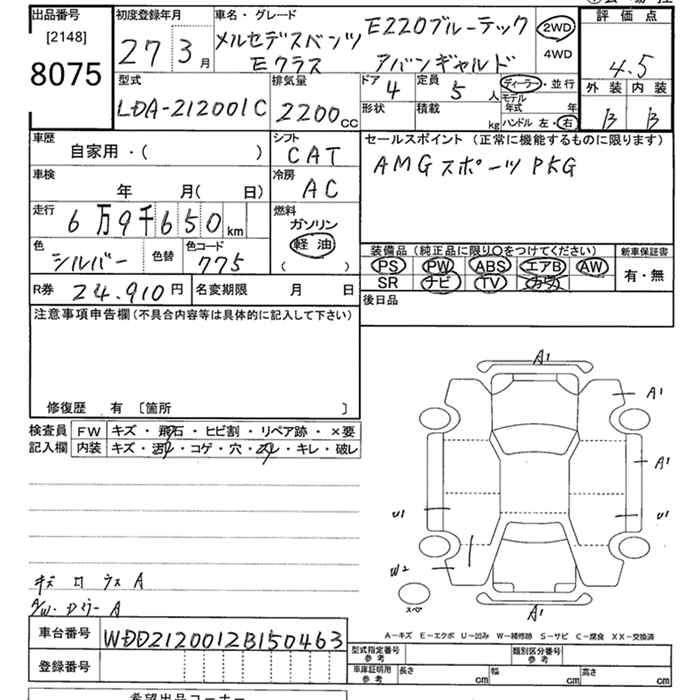 出品番号
[2148]
8075
初度登録年月
27 3月
車名・グレード
メルセデスベンツ E220ブルーテック
Eクラス アバンギャルド
2WD
4WD
評価点
4.5
外装 内装
B B
型式
LDA-212001C
排気量
2200cc
ドア
4
定員
5人
形状
積載
kg
ディーラー・並行
モデル年式 年
ハンドル 左・右
車歴
自家用・( )
シフト
CAT
セールスポイント (正常に機能するものに限ります)
AMGスポーツPKG
車検
年 月( 日)
冷房
AC
走行
6万9千650km
燃料
ガソリン
軽油
( )
色
シルバー
色替
色コード
775
装備品(純正品に限り〇をつけてください)
PS PW ABS エアB AW
SR ナビ TV
新車保証書
有・無
R券 24.910円
名変期限 月 日
後日品
注意事項申告欄(不具合内容等は具体的に記入して下さい)
修復歴 有 [箇所 ]
検査員
記入欄
FW キズ・飛石・ヒビ割・リペア跡・×要
内装 キズ・汚れ・コゲ・穴・スレ・キレ・破レ
A1
A1
A1
U1
U1
W2
A1
スペア
A/W・ドリーA
A-キズ E-エクボ U-凹み W-補修跡 S-サビ C-腐食 XX-交換済
車台番号 WDD2120012B150463
登録番号
型式指定番号
参考
類別区分番号
参考
車庫証明用
参考
長さ cm
幅 cm
高さ cm
希望出品コーナー